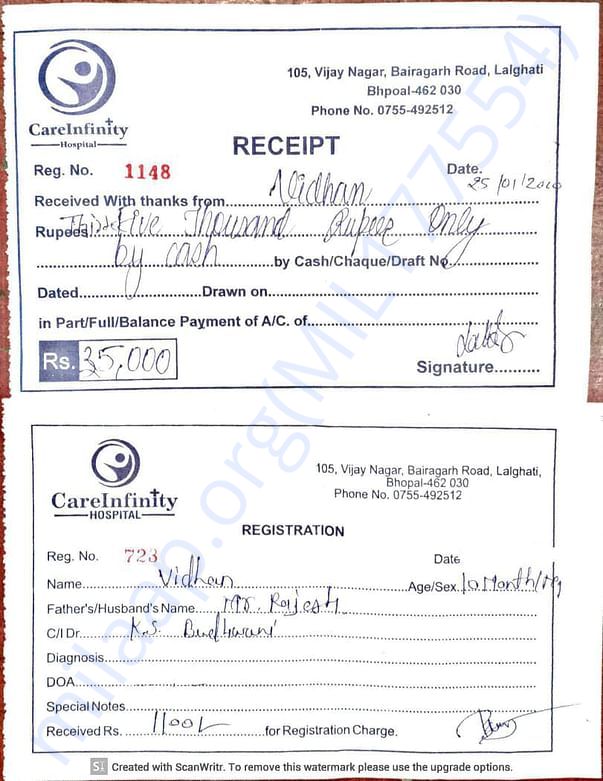 CareInfinity
Hospital
105, Vijay Nagar, Bairagarh Road, Lalghati
Bhpoal-462 030
Phone No. 0755-492512
RECEIPT
Reg. No. 1148 Date. 25/01/20
Received With thanks from Vidhan
Rupees Thirty Five Thousand Rupees Only
by cash by Cash/Chaque/Draft No
Dated Drawn on
in Part/Full/Balance Payment of A/C. of
Rs. 35,000
Signature
CareInfinity
HOSPITAL
105, Vijay Nagar, Bairagarh Road, Lalghati,
Bhopal-462 030
Phone No. 0755-492512
REGISTRATION
Reg. No. 723 Date
Name Vidhan Age/Sex 10 Month/
Father's/Husband's Name Mr. Rajesh
C/I Dr. K.S. Budhwani
Diagnosis
DOA
Special Notes
Received Rs. 1100/ for Registration Charge.
milaap.org(MIL177554)
S Created with ScanWritr. To remove this watermark please use the upgrade options.